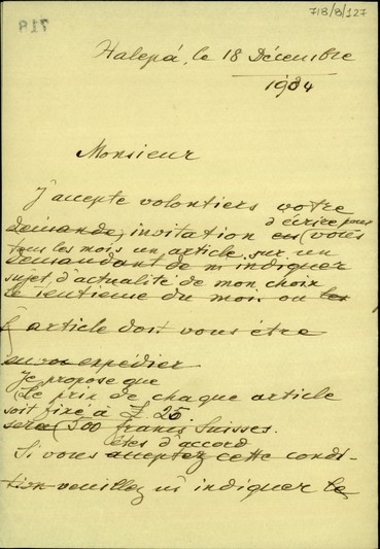 718/8/127
719
Halepá, le 18 Décembre
1934
Monsieur
J'accepte volontiers votre
d'écrire pour
demande, invitation en (vous
tous les mois un article sur un
demandant de m'indiquer
sujet d'actualité de mon choix
le sentième du mois ou le
article doit vous être
expédier
Je propose que
Le prix de chaque article
soit fixé à £. 25.
sera 500 francs Suisses.
êtes d'accord
Si vous acceptez cette condi-
tion veuillez m'indiquer le